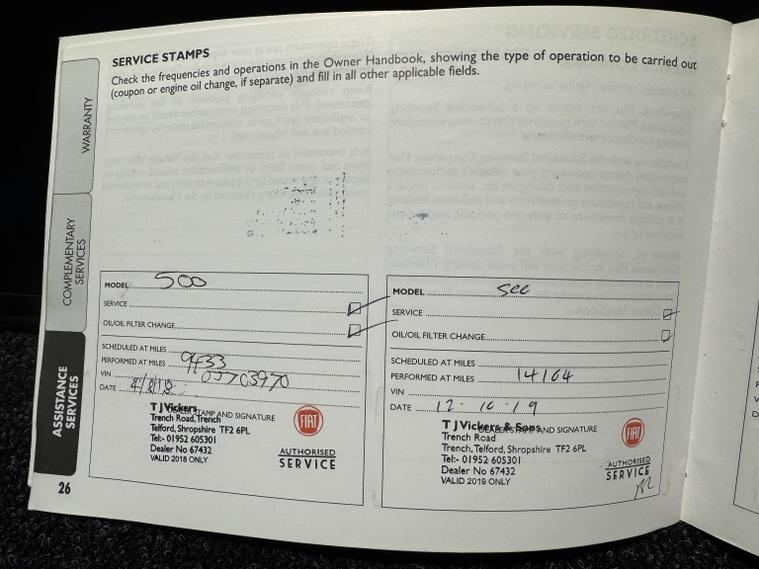 SERVICE STAMPS
Check the frequencies and operations in the Owner Handbook, showing the type of operation to be carried out
(coupon or engine oil change, if separate) and fill in all other applicable fields.
WARRANTY
COMPLEMENTARY
SERVICES
ASSISTANCE
SERVICES
MODEL 500
SERVICE
OIL/OIL FILTER CHANGE
SCHEDULED AT MILES
PERFORMED AT MILES 9433
VIN 05703970
DATE
T J Vickers
DEALER STAMP AND SIGNATURE
Trench Road, Trench
Telford, Shropshire TF2 6PL
Tel:- 01952 605301
Dealer No 67432
VALID 2018 ONLY
FIAT
AUTHORISED
SERVICE
MODEL
SERVICE
OIL/OIL FILTER CHANGE
SCHEDULED AT MILES
PERFORMED AT MILES 14164
VIN
DATE 12-10-19
T J Vickers & Sons
DEALER STAMP AND SIGNATURE
Trench Road
Trench, Telford, Shropshire TF2 6PL
Tel:- 01952 605301
Dealer No 67432
VALID 2019 ONLY
FIAT
AUTHORISED
SERVICE
26